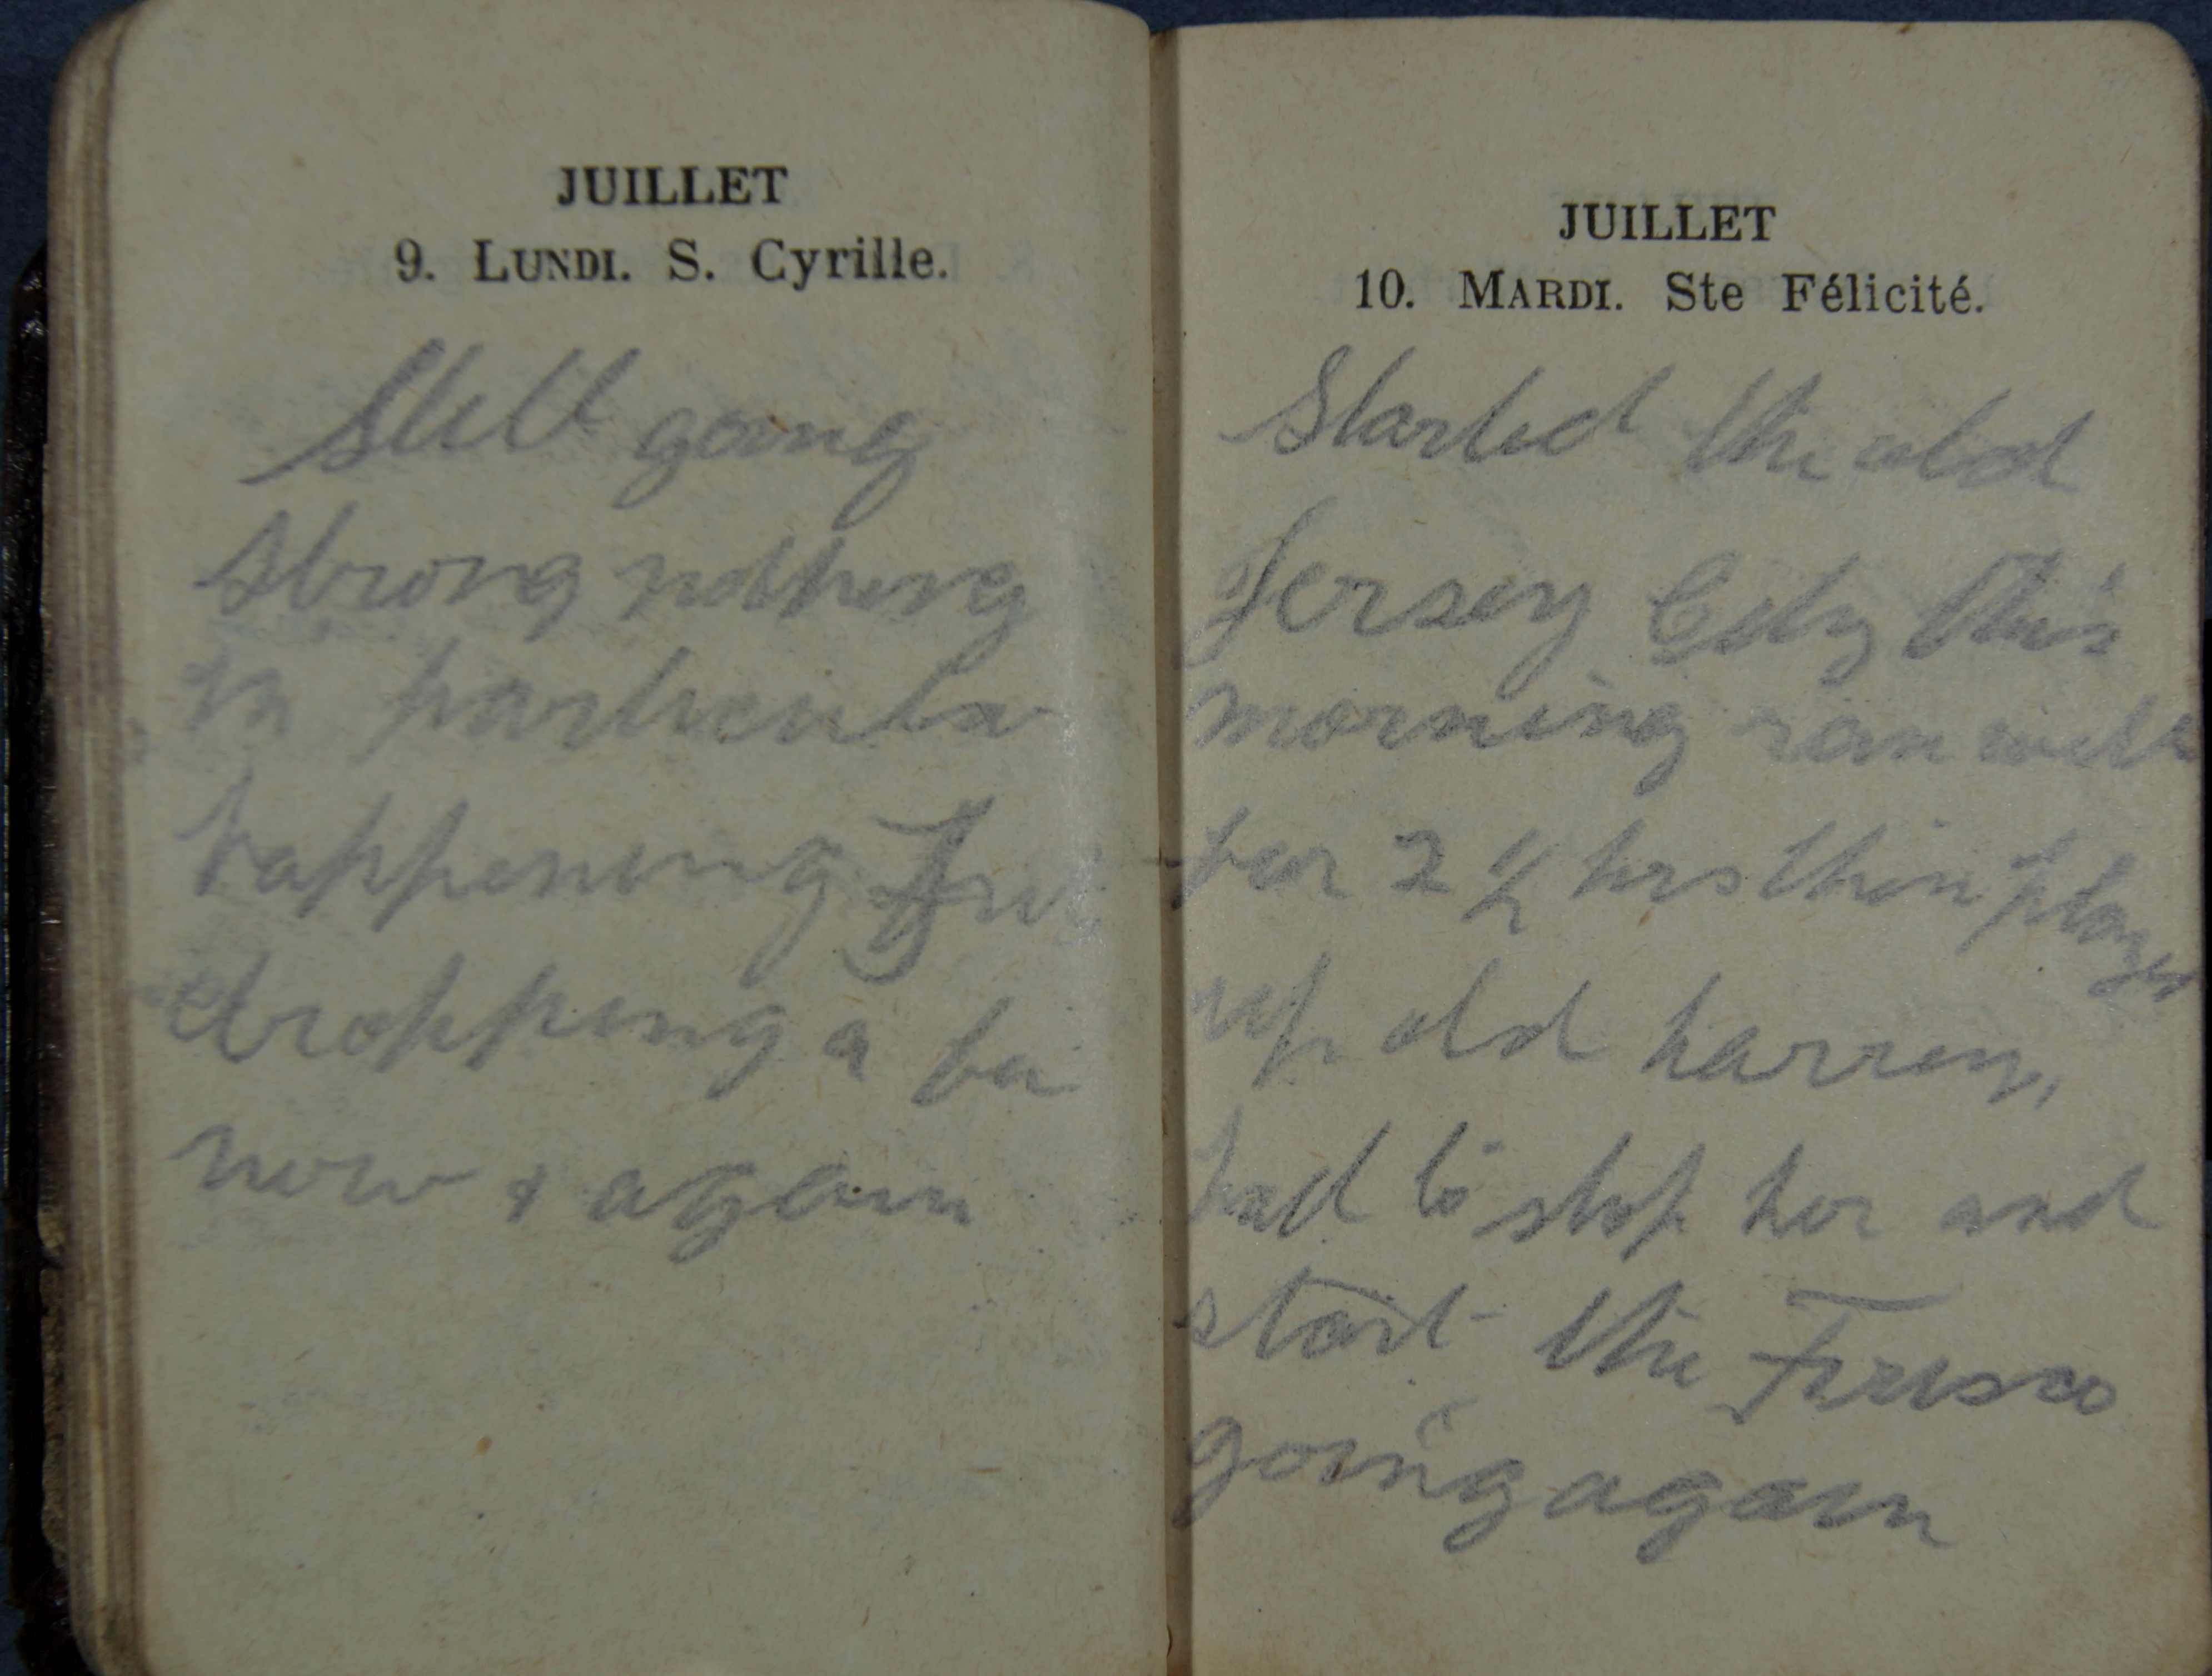 JUILLET
9. LUNDI. S. Cyrille.
Still going
strong nothing
in particular
happening
dropping a
now & again
JUILLET
10. MARDI. Ste Félicité.
Started the old
Jersey City this
morning ran well
for 2 1/2 hrs then played
up old harry,
had to stop her and
start the Frisco
going again